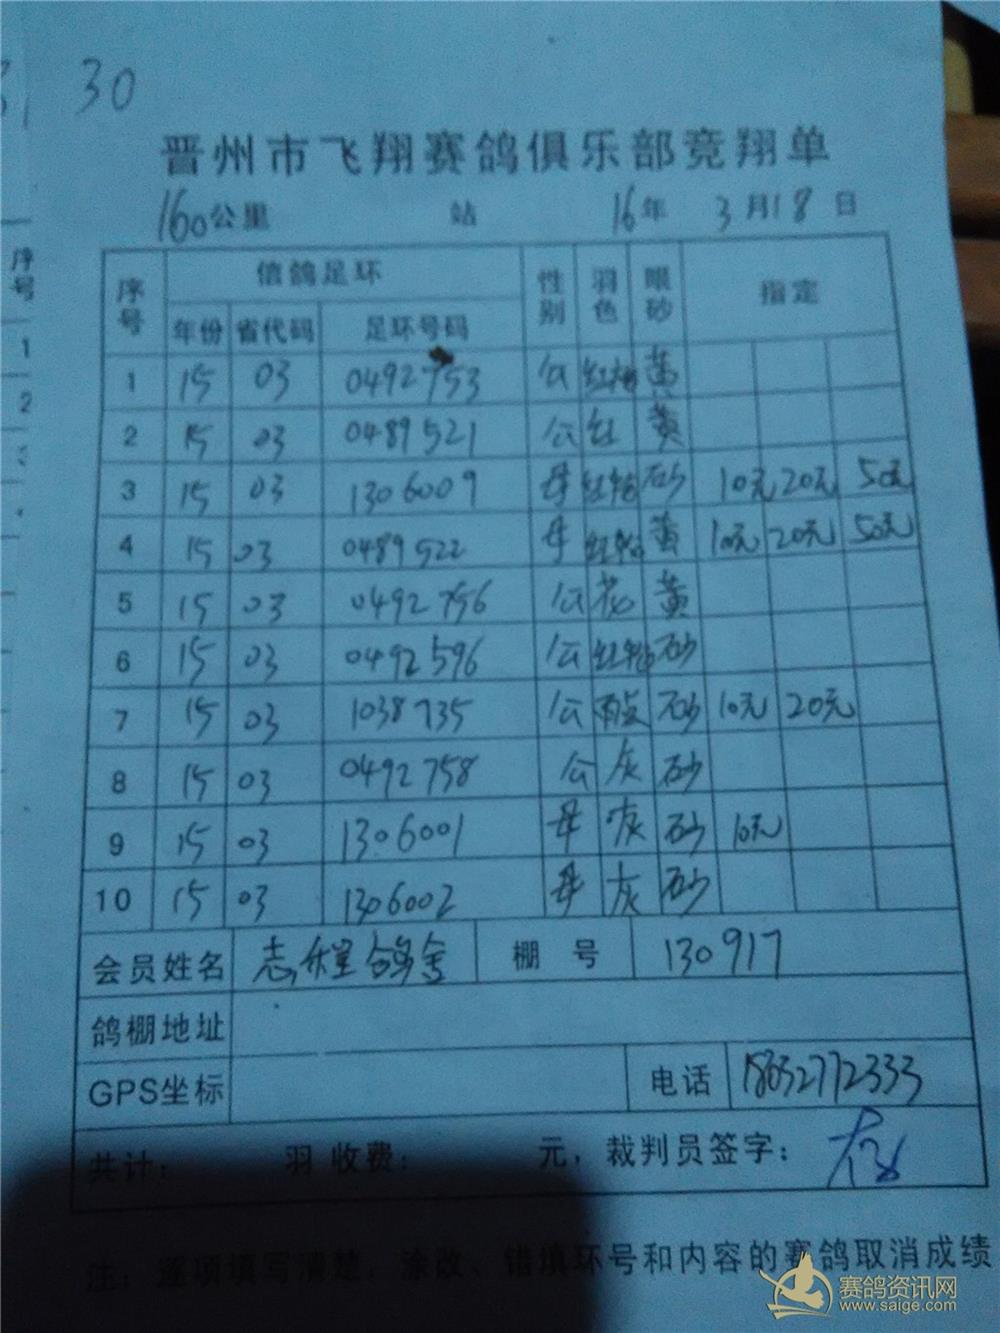 30
晋州市飞翔赛鸽俱乐部竞翔单
160公里 站 16年 3月18日
序号 信鸽足环 性别 羽色 眼砂 指定
年份 省代码 足环号码
1 15 03 0492753 公 红 黄
2 15 03 0489521 公 红 黄
3 15 03 1306009 母 红轮 砂 10元 20元 50元
4 15 03 0489522 母 红轮 黄 10元 20元 50元
5 15 03 0492756 公 花 黄
6 15 03 0492596 公 红轮 砂
7 15 03 1038735 公 雨点 砂 10元 20元
8 15 03 0492758 公 灰 砂
9 15 03 1306001 母 灰 砂 10元
10 15 03 1306002 母 灰 砂
会员姓名 志程鸽舍 棚号 130917
鸽棚地址
GPS坐标 电话 18632772333
共计: 羽 收费: 元,裁判员签字:
注:逐项填写清楚,涂改、错填环号和内容的赛鸽取消成绩
序号
1
2
3
赛鸽资讯网
www.saige.com